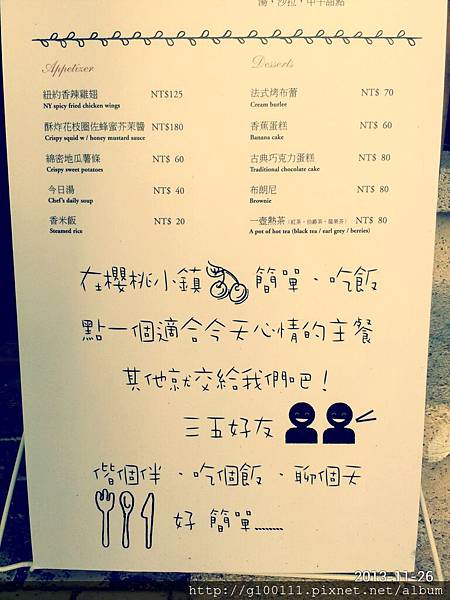 湯，沙拉，甲子甜點
Appetizer
紐約香辣雞翅 NT$125
NY spicy fried chicken wings
酥炸花枝圈佐蜂蜜芥茉醬 NT$180
Crispy squid w / honey mustard sauce
綿密地瓜薯條 NT$ 60
Crispy sweet potatoes
今日湯 NT$ 40
Chef's daily soup
香米飯 NT$ 20
Steamed rice
Desserts
法式烤布蕾 NT$ 70
Cream burlee
香蕉蛋糕 NT$ 60
Banana cake
古典巧克力蛋糕 NT$ 80
Traditional chocolate cake
布朗尼 NT$ 80
Brownie
一壺熱茶（紅茶、伯爵茶、莓果茶） NT$ 80
A pot of hot tea (black tea / earl grey / berries)
在櫻桃小鎮 簡單、吃飯
點一個適合今天心情的主餐
其他就交給我們吧！
三五好友
偕個伴、吃個飯、聊個天
好 簡單........
2013-11-26
http://g100111.pixnet.net/album